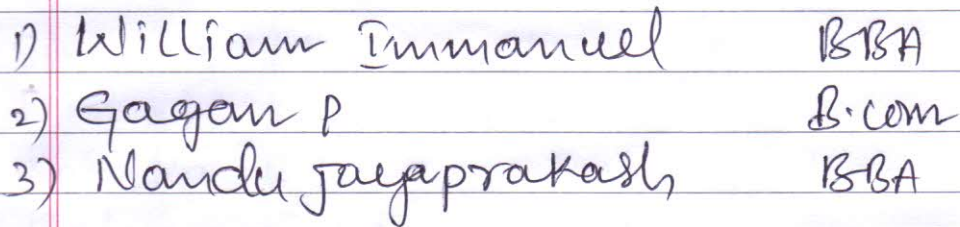 1) William Immanuel BBA
2) Gagan P B.com
3) Nandu Jayaprakash BBA